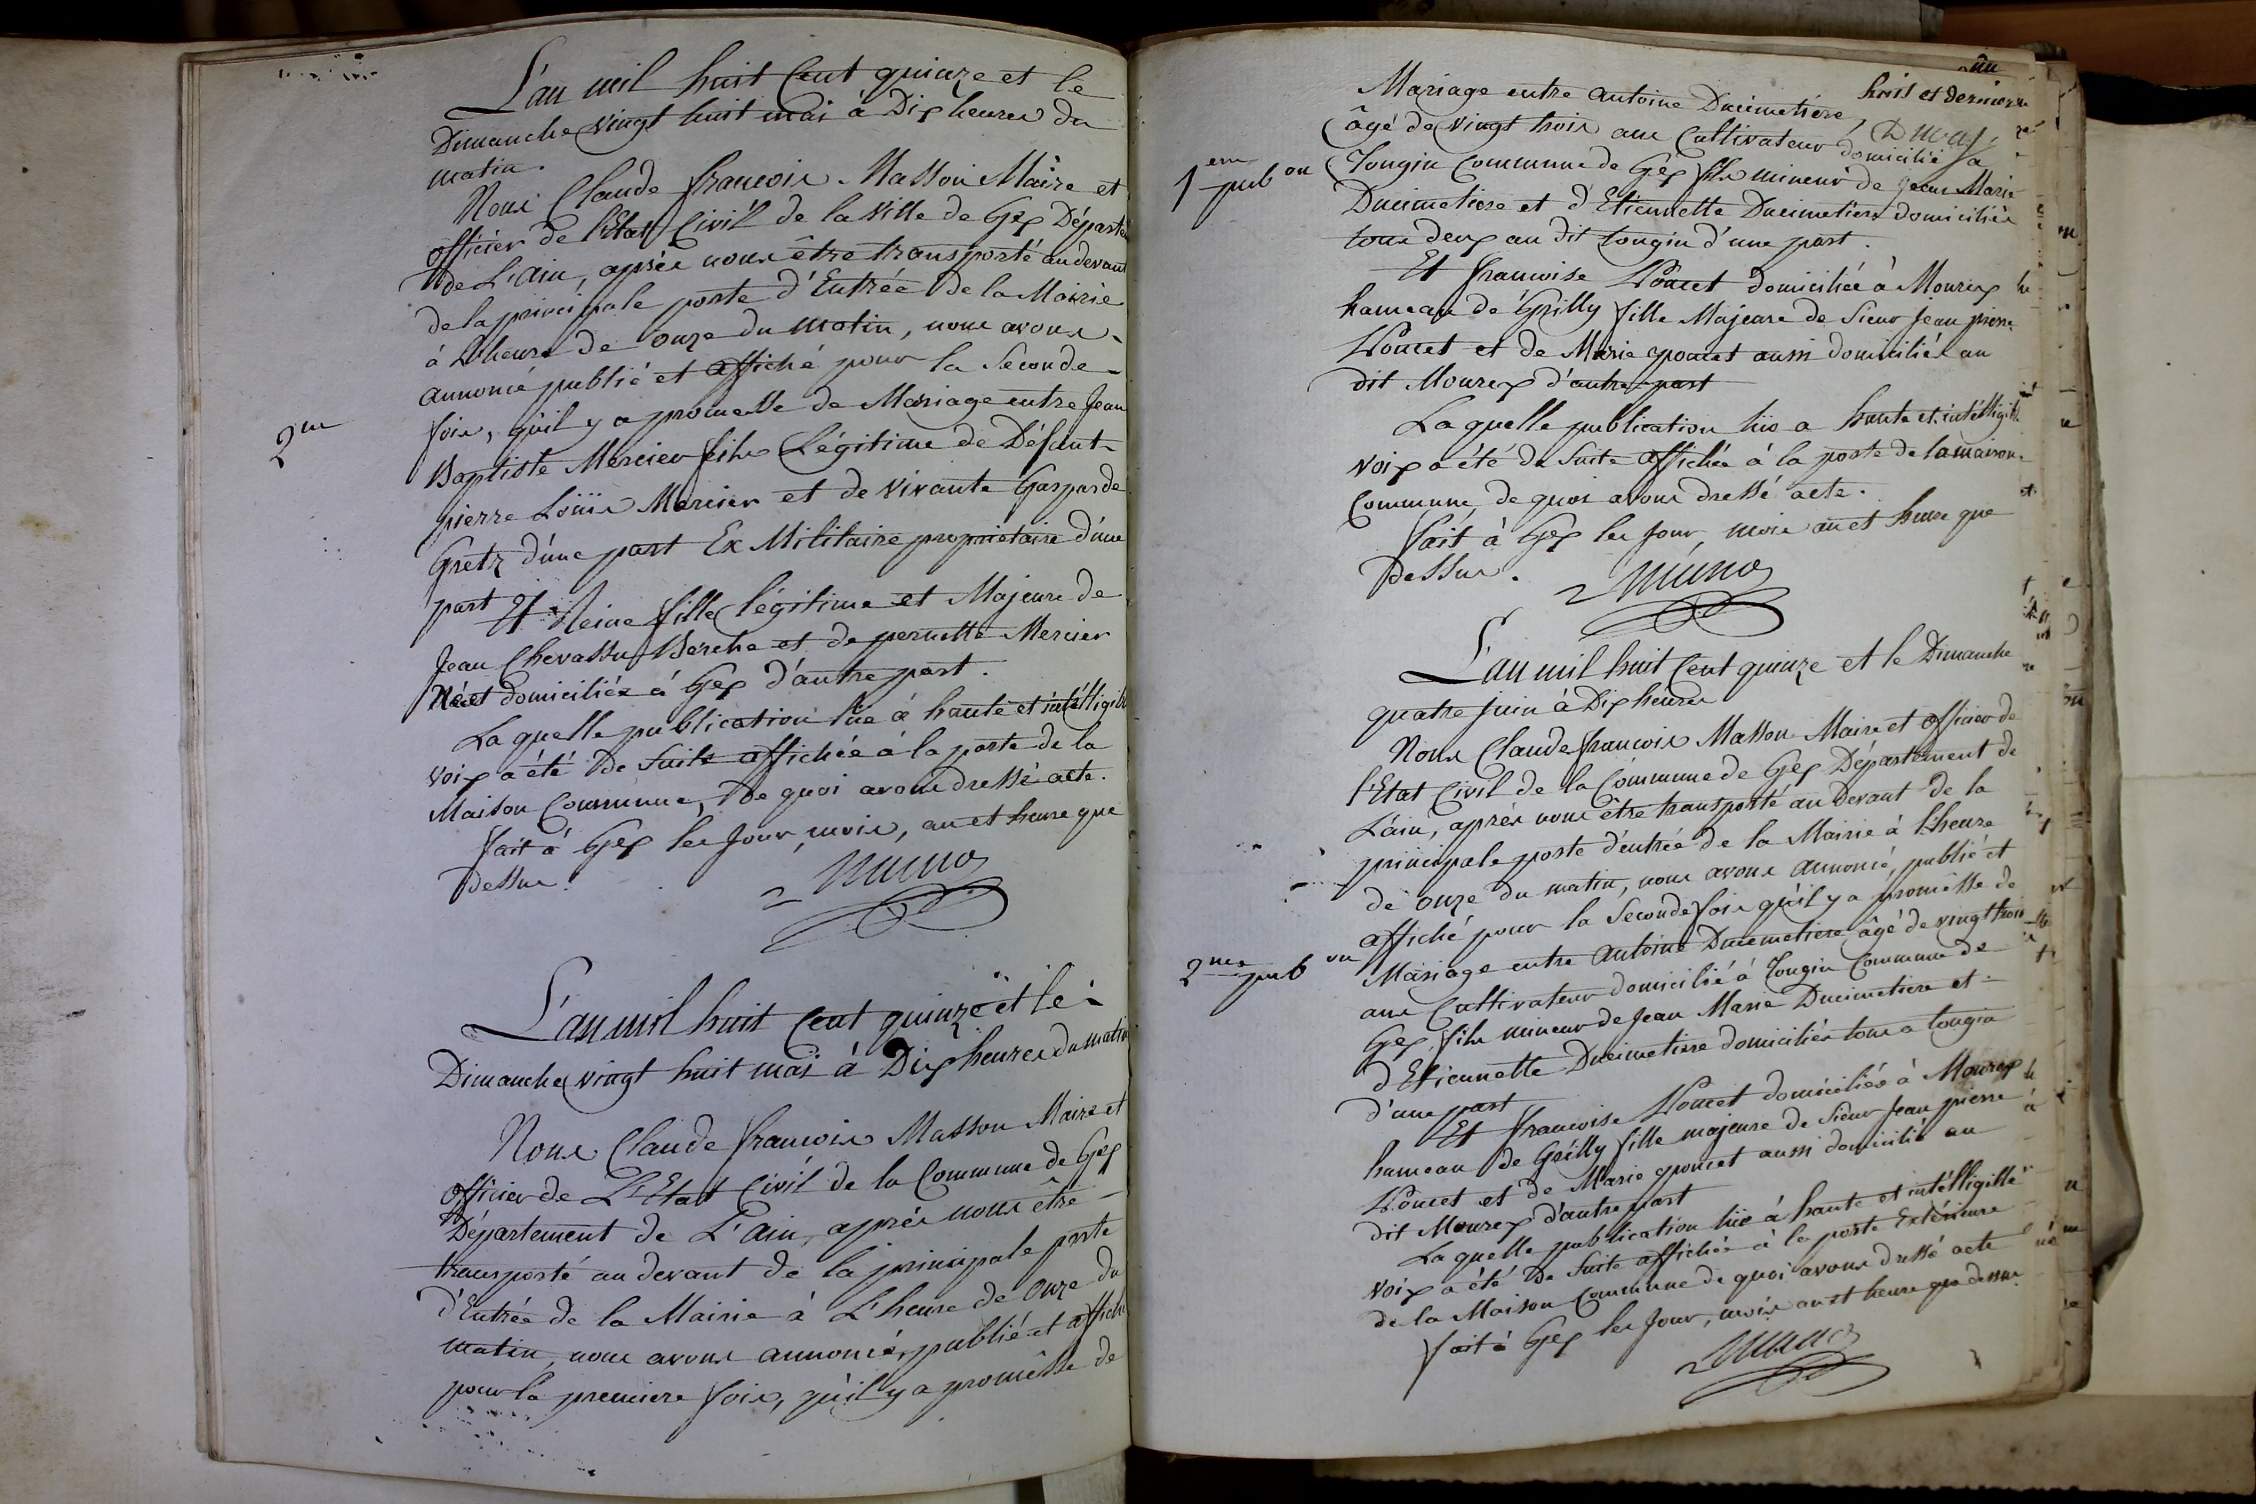 L'an mil huit Cent quinze et le
Dimanche vingt huit mai à Dix heures du
matin.
Nous Claude françois Masson Maire et
officier de l'Etat Civil de la Ville de Gex Départ
de L'ain, après nous être transporté au devant
de la principale porte d'Entrée de la Mairie
à L'heure de onze du matin, nous avons
annoncé publié et affiché pour la Seconde
2me
fois, qu'il y a promesse de Mariage entre Jean
Baptiste Mercier fils Légitime de Défunt
pierre Loüis Mercier et de vivante Gasparde
Gretz d'une part Ex Militaire propriétaire d'une
part Et Reine fille légitime et Majeure de
Jean Chevassu Berche et de pernette Mercier
Née et domiciliée à Gex d'autre part.
La quelle publication lue à haute et intélligible
voix a été de Suite affichée à la porte de la
Maison Commune, De quoi avons dressé acte.
fait à Gex les Jour, mois, an et heure que
dessus.
L'an mil huit Cent quinze et le
Dimanche vingt huit mai à Dix heures du matin
Nous Claude françois Masson Maire et
officier de L'Etat Civil de la Commune de Gex
Département de L'ain, après nous être
transporté au devant de la principale porte
d'Entrée de la Mairie à L'heure de onze du
matin, nous avons annoncé, publié et affiché
pour la premiere fois, qu'il y a promêsse de
trois et dernier
Mariage entre antoine Ducimetière
âgé de vingt trois ans Cultivateur domicilié a
1ere pubon
Tougin Commune de Gex fils mineur de Jean Marie
Ducimetiere et d'Etiennette Ducimetiere domiciliés
tous deux au dit tougin d'une part.
Et françoise Poncet domiciliée à Mourex
hameau de Grilly fille Majeure de Sieur Jean pierre
Poncet et de Marie poncet aussi domiciliés au
dit Mourex d'autre part
La quelle publication lue a haute et intélligible
voix a été de Suite affichée à la porte de la maison
Commune, de quoi avons dressé acte.
fait à Gex les Jour, mois an et heure que
dessus.
L'an mil huit Cent quinze et le Dimanche
quatre juin à Dix heures
Nous Claude françois Masson Maire et officier de
l'Etat Civil de la Commune de Gex Département de
L'ain, après nous être transporté au devant de la
principale porte d'entrée de la Mairie à l'heure
de onze du matin, nous avons annoncé, publié et
affiché pour la Seconde fois qu'il y a promêsse de
2me pubon
Mariage entre antoine Ducimetiere âgé de vingt trois
ans Cultivateur domicilié à Tougin Commune de
Gex fils mineur de Jean Marie Ducimetiere et
d'Etiennette Ducimetiere domiciliés tous a tougin
d'une part
Et françoise Poncet domiciliée à Mourex
hameau de Grilly fille majeure de Sieur Jean pierre
Poncet et de Marie poncet aussi domicilié au
dit Mourex d'autre part
La quelle publication lue à haute et intélligible
voix a été de Suite affichée à la porte Extérieure
de la Maison Commune de quoi avons dressé acte
fait à Gex les Jour, mois an et heure que dessus